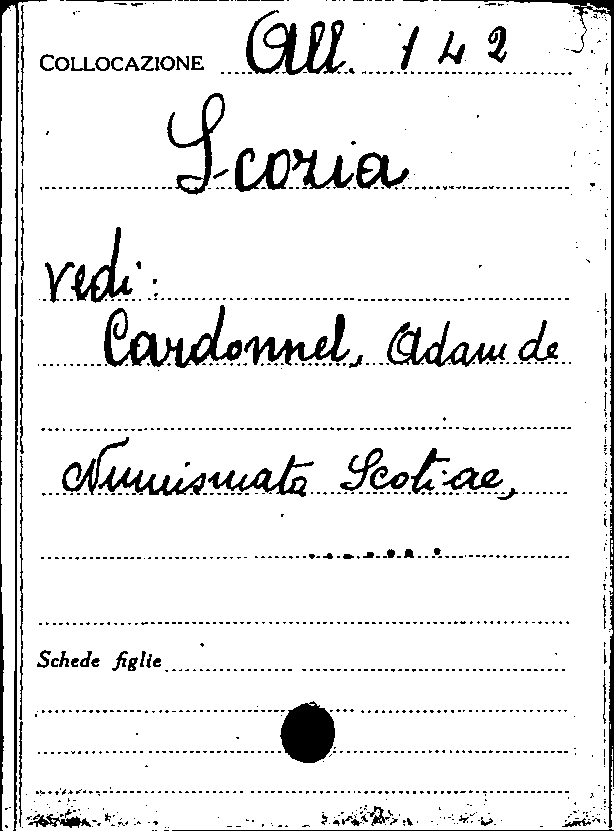 COLLOCAZIONE All. 142
Scozia
vedi:
Cardonnel, Adam de
Numismata Scotiae,
.......
Schede figlie